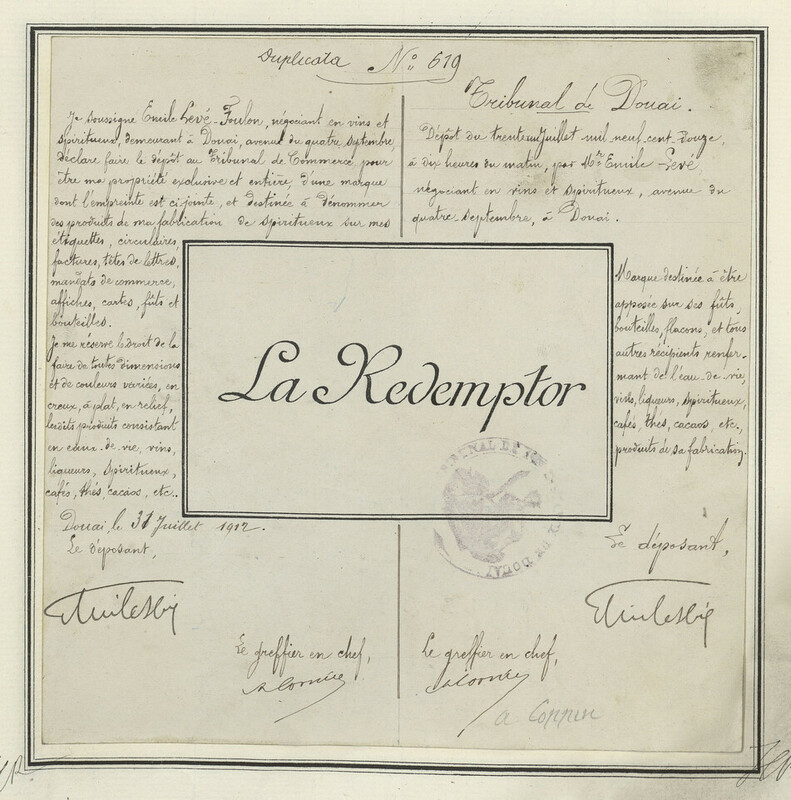 Duplicata Nº 619
Je soussigné Emile Levé-Foulon, négociant en vins et
spiritueux, demeurant à Douai, avenue du quatre septembre,
déclare faire le dépôt au Tribunal de Commerce, pour
être ma propriété exclusive et entière, d'une marque
dont l'empreinte est ci-jointe, et destinée à dénommer
des produits de ma fabrication de spiritueux sur mes
étiquettes, circulaires,
factures, têtes de lettres,
mandats de commerce,
affiches, cartes, fûts et
bouteilles.
Je me réserve le droit de la
faire de toutes dimensions
et de couleurs variées, en
creux, à plat, en relief,
lesdits produits consistant
en eaux-de-vie, vins,
liqueurs, spiritueux,
cafés, thés, cacaos, etc..
Douai, le 31 Juillet 1912.
Le déposant,
Le greffier en chef,
Tribunal de Douai.
Dépôt du trente un Juillet mil neuf-cent-douze,
à dix heures du matin, par Mr Emile Levé
négociant en vins et spiritueux, avenue du
quatre-septembre, à Douai.
La Redemptor
Marque destinée à être
apposée sur ses fûts,
bouteilles, flacons, et tous
autres récipients renfer-
mant de l'eau-de-vie,
vins, liqueurs, spiritueux,
cafés, thés, cacaos, etc.,
produits de sa fabrication.
Le déposant,
Le greffier en chef,
DE DOUAI